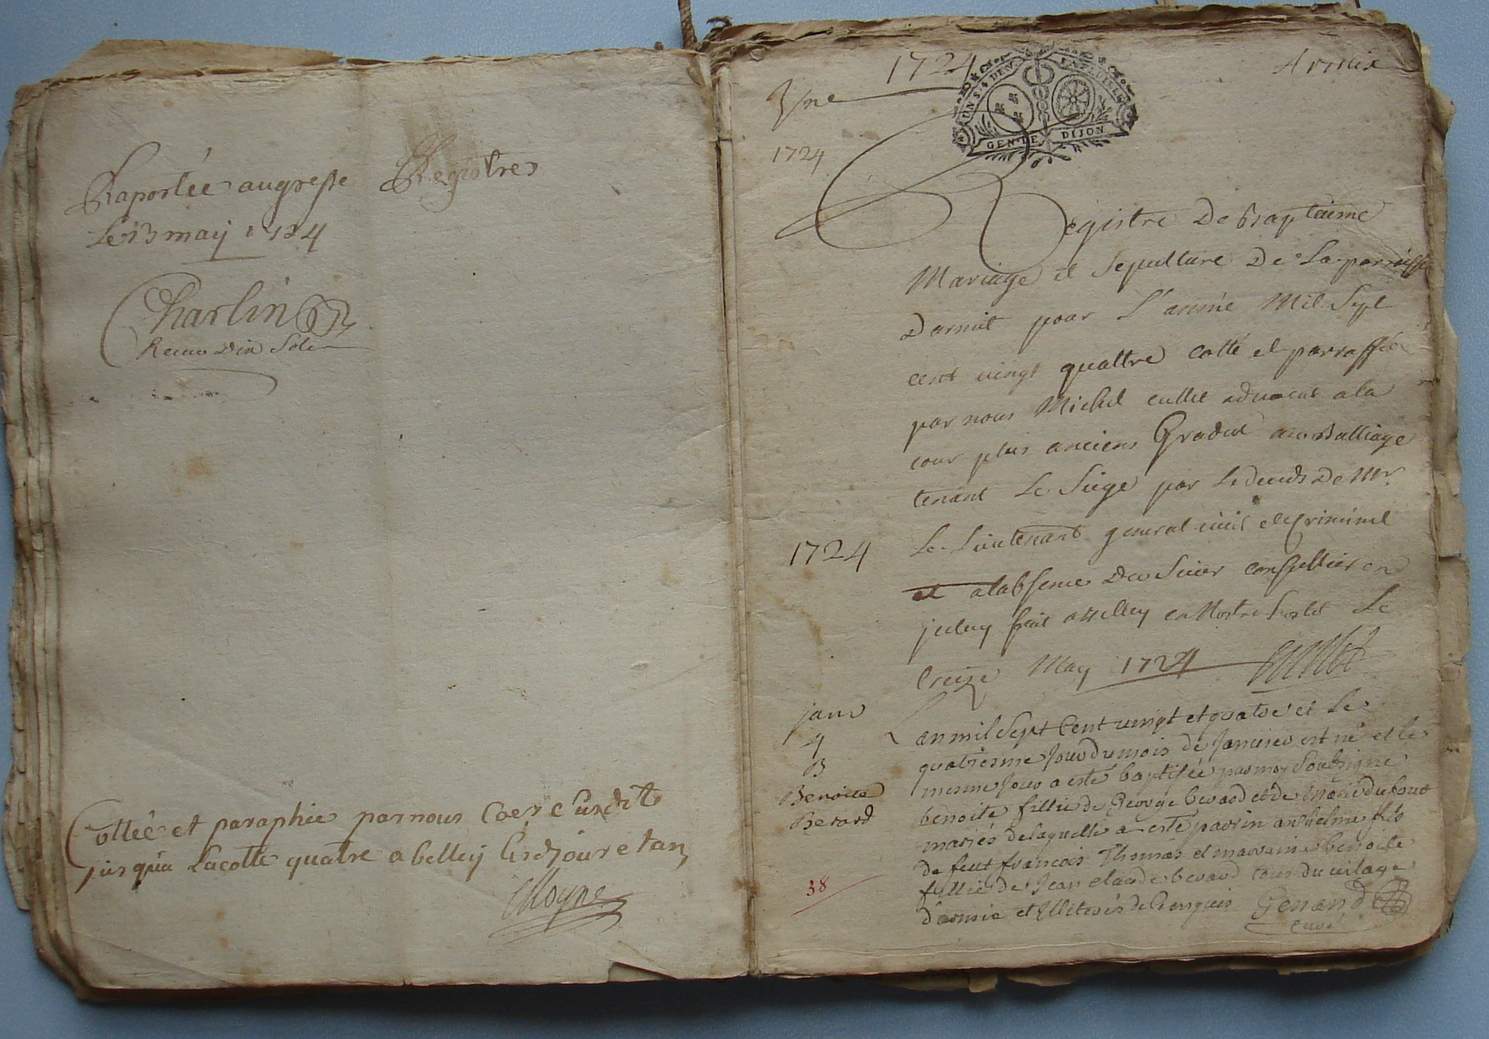 Raportée au greffe
Le 13 maÿ 1724
Charlin
Registres
Cottée et paraphée par nous
jusqu'a La cotte quatre a belleÿ Lesd jour et an
Moyne
1724
Armix
1724
GEN. DE DIJON
Registre De Baptaime
Mariage et Sepulture De La parroisse
Darmit pour L'année Mil Sept
cent vingt quattre cotté et parraffée
par nous Michel cullet advocat a la
cour plus anciens Gradué au Balliage
tenant Le Siege par Le deceds De Mr.
1724
Le Lieutenant general civil et Criminel
et a labsence du Sieur conseillier en
jceluy fait a Belley en Nostre hostel Le
treize May 1724
Cullet
janv
4
B
Benoite
Berard
38
L'an mil Sept Cent vingt et quatre et Le
quatriesme Jour du mois de Janvier est né et le
mesme Jour a esté baptisée par moy Soubsigné
benoite fillie de George berard et de Marie dufour
mariés de laquelle a esté parrin anthelme fils
de feut francois Thomas et marraine benoite
fillie de Jean claude berard tous du vilage
d'armix et Illiterés de Genand
curé